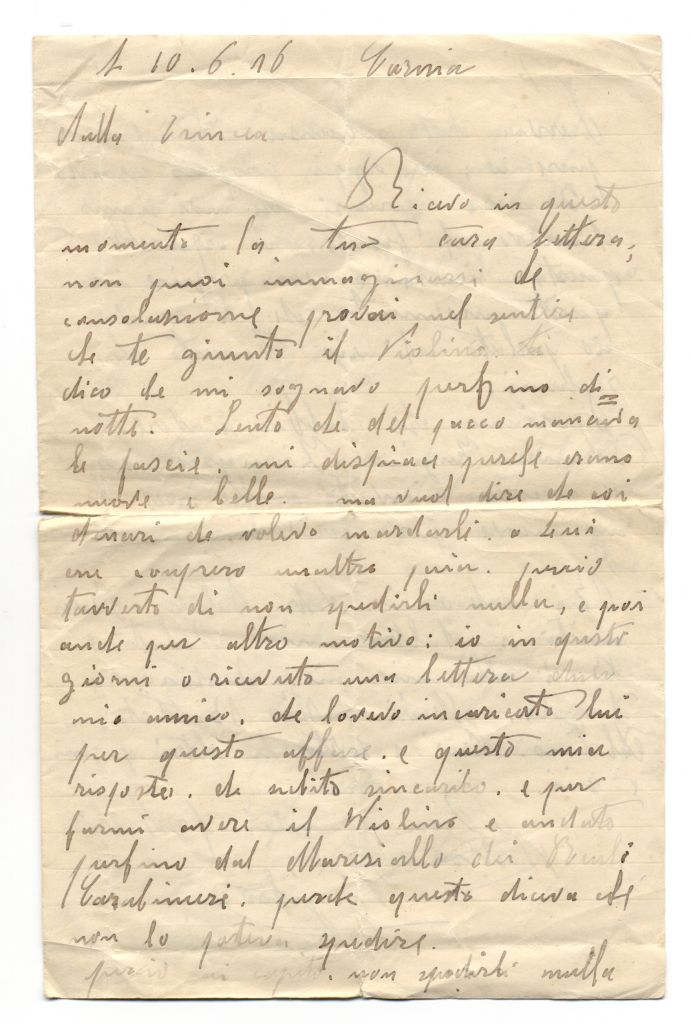 10.6.16 Carnia
Dalla Trincea
Ricevo in questo
momento la tua cara lettera,
non puoi immaginarsi che
consolazione provai nel sentire
che te giunto il Violino, ti
dico che mi sognavo perfino di
notte. Sento che del pacco mancava
le fascie, mi dispiace perche erano
nuove e belle. ma vuol dire che coi
denari che volevo mandarli. a Lui
me comprero unaltro paia. percio
tavverto di non spedirli nulla, e poi
anche per altro motivo: io in questi
giorni o ricevuto una lettera dal
mio amico. che lovevo incaricato lui
per questo affare. e questo mia
risposto. che subito sincarito. e per
farmi avere il Wiolino e andato
perfino dal Maresiallo dei Reali
Carabinieri. perche questo diceva che
non lo poteva spedire.
percio ai capito. non spedirli nulla